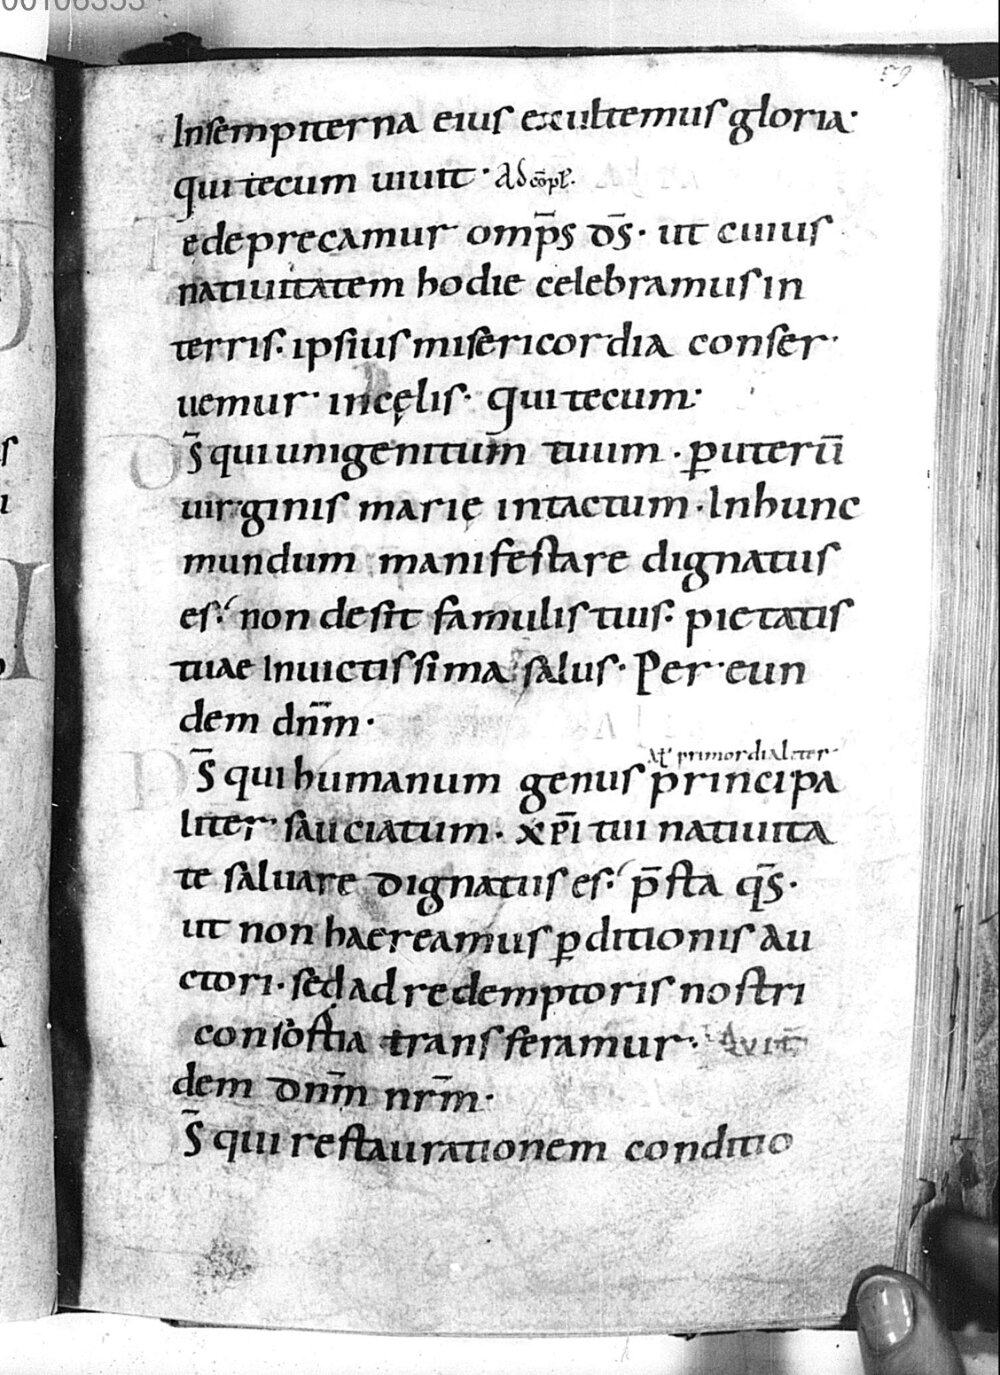 00106353
59
Insempiterna eius exultemus gloria·
qui tecum uiuit· Ad cōpl̄·
Te deprecamur omp̄s d̄s· ut cuius
natiuitatem hodie celebramus in
terris· ipsius misericordia conser
uemur· incęlis· qui tecum:
D̄s qui unigenitum tuum· ꝑ uterū
uirginis marię intactum· Inhunc
mundum manifestare dignatus
es· non desit famulis tuis· pietatis
tuae Inuictissima salus· Per eun
dem dn̄m·
primordialiter
D̄s qui humanum genus principa
liter sauciatum· xp̄i tui natiuita
te saluare dignatus es· p̄sta q̄s·
ut non haereamus ꝑditionis au
ctori· sed ad redemptoris nostri
transferamur·
dem dn̄m nr̄m·
D̄s qui restaurationem conditio